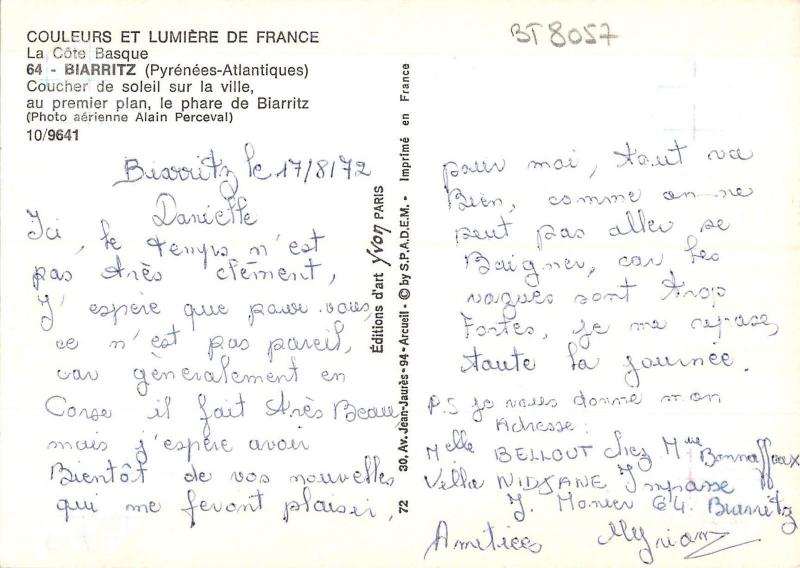 COULEURS ET LUMIÈRE DE FRANCE
La Côte Basque
64 - BIARRITZ (Pyrénées-Atlantiques)
Coucher de soleil sur la ville,
au premier plan, le phare de Biarritz
(Photo aérienne Alain Perceval)
10/9641
BT 8057
Biarritz le 17/8/72
Danielle
Ici, le temps n'est
pas très clément,
J'espère que pour vous,
ce n'est pas pareil,
car gènéralement en
Corse il fait très Beau
mais j'espère avoir
Bientôt de vos nouvelles
qui me feront plaisir,
72 30, Av. Jean-Jaurès - 94 - Arcueil - © by S.P.A.D.E.M. - Imprimé en France
Éditions d'art yvon PARIS
pour moi, tout va
Bien, comme on ne
peut pas aller se
Baigner, car les
vagues sont trop
Fortes, je me repose,
toute la journée.
P.S je vous donne mon
Adresse:
Melle BELLOUT chez Mme Bonnaffoux
Villa NIDJANE Impasse
J. Monier 64. Biarritz
Amitiées Myriam